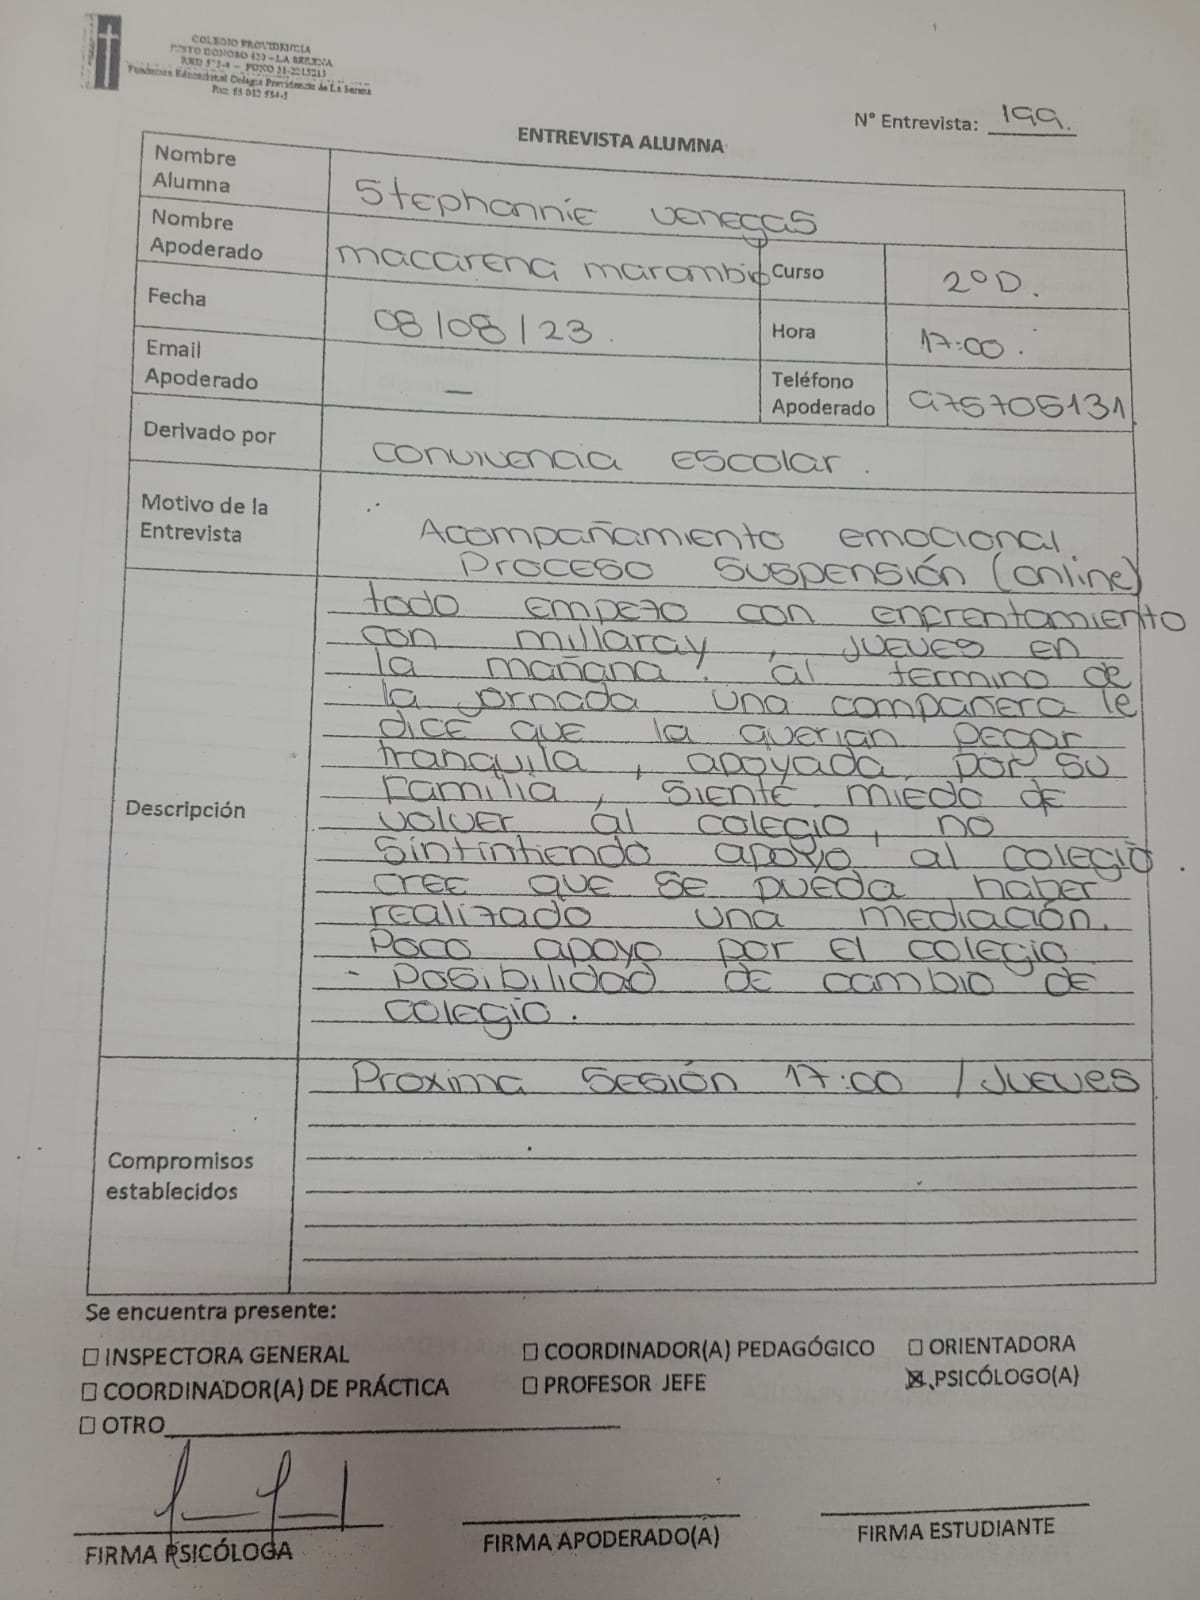 COLEGIO PROVIDENCIA
JUSTO DONOSO 420 - LA SERENA
Fundación Educacional Colegio Providencia de La Serena
N° Entrevista: 199.
ENTREVISTA ALUMNA
Nombre Alumna
Stephannie venegas
Nombre Apoderado
macarena marambio
Curso
2°D.
Fecha
08/08/23.
Hora
17:00.
Email Apoderado
—
Teléfono Apoderado
975705131
Derivado por
convivencia escolar.
Motivo de la Entrevista
Acompañamiento emocional.
Proceso suspensión (online)
Descripción
todo empezo con enfrentamiento
con millaray, jueves en
la mañana. al termino de
la jornada una compañera le
dice que la querian pegar
tranquila, apoyada por su
familia, siente miedo de
volver al colegio, no
sintintiendo apoyo al colegio.
cree que se pueda haber
realizado una mediación.
Poco apoyo por el colegio
- Posibilidad de cambio de
colegio.
Compromisos establecidos
Proxima sesión 17:00 / Jueves
Se encuentra presente:
☐ INSPECTORA GENERAL ☐ COORDINADOR(A) PEDAGÓGICO ☐ ORIENTADORA
☐ COORDINADOR(A) DE PRÁCTICA ☐ PROFESOR JEFE ☒ PSICÓLOGO(A)
☐ OTRO
FIRMA PSICÓLOGA FIRMA APODERADO(A) FIRMA ESTUDIANTE